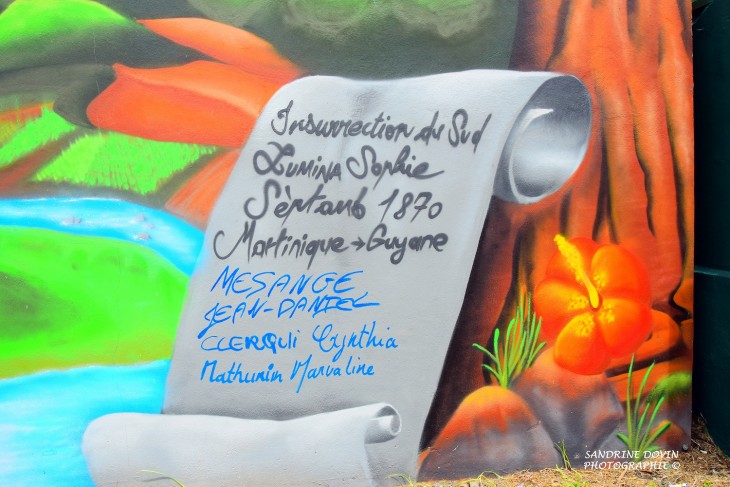 Insurrection du Sud
Lumina Sophie
Séptanb 1870
Martinique → Guyane
MESANGE
JEAN-DANIEL
CLERQUI Cynthia
Mathurin Marvaline
SANDRINE DOVIN
PHOTOGRAPHIE ©